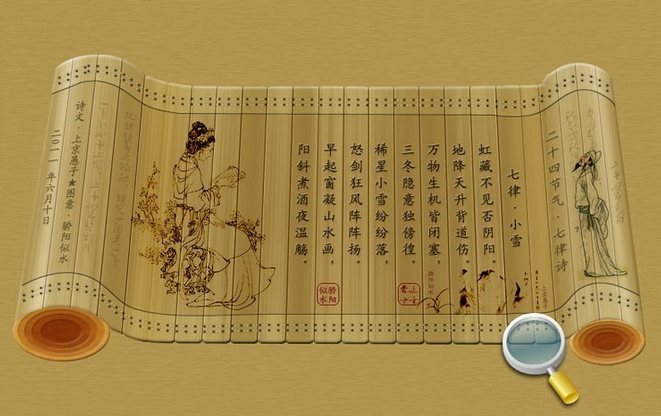 二十四节气·七律诗
七律·小雪
虹藏不见否阴阳。
地降天升背道伤。
万物生机皆闭塞，
三冬隐意独徬徨。
稀星小雪纷纷落，
怒剑狂风阵阵扬。
早起窗凝山水画，
阳斜煮酒夜温觞。
骄阳似水
骄阳似水
诗文·上京愚子★图意·骄阳似水
二0一一年六月十日